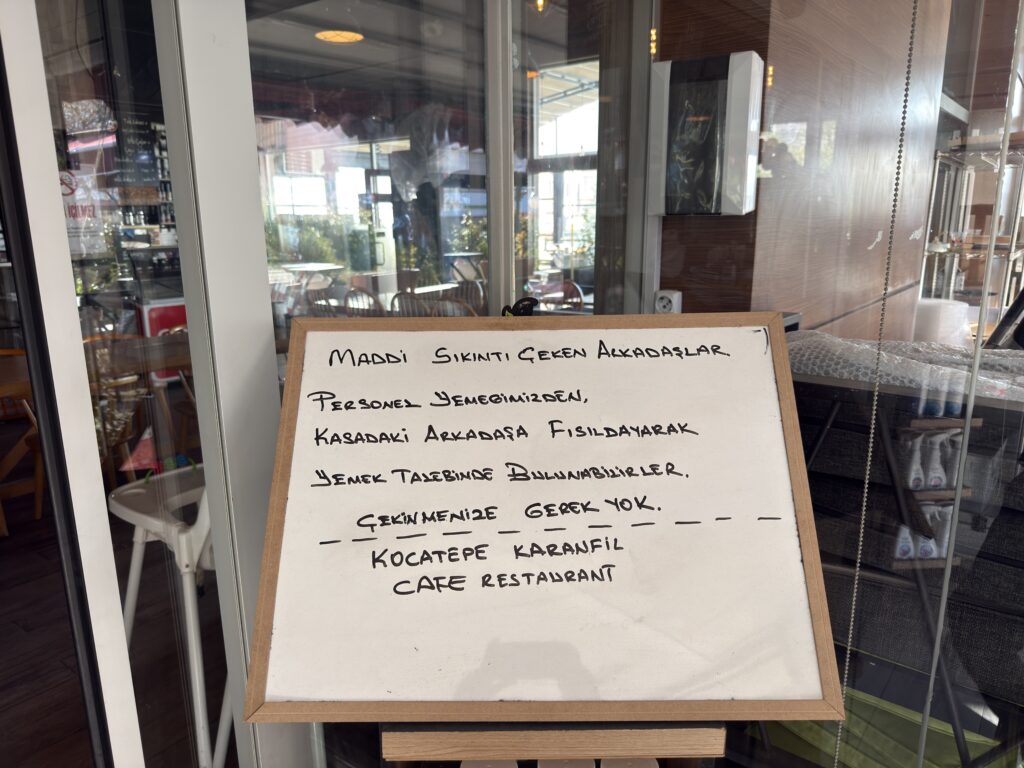 MADDİ SIKINTI ÇEKEN ARKADAŞLAR
PERSONEL YEMEĞİMİZDEN,
KASADAKİ ARKADAŞA FISILDAYARAK
YEMEK TALEBİNDE BULUNABİLİRLER.
ÇEKİNMENİZE GEREK YOK.
KOCATEPE KARANFİL
CAFE RESTAURANT